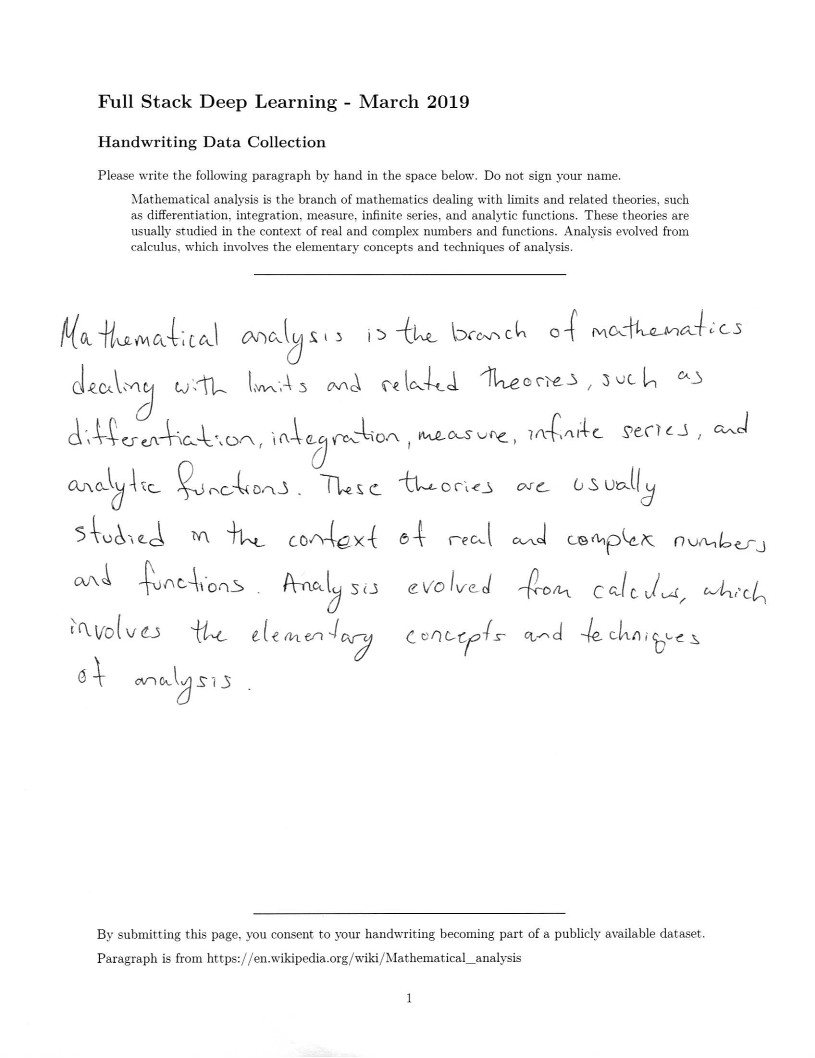 Full Stack Deep Learning - March 2019
Handwriting Data Collection
Please write the following paragraph by hand in the space below. Do not sign your name.
Mathematical analysis is the branch of mathematics dealing with limits and related theories, such
as differentiation, integration, measure, infinite series, and analytic functions. These theories are
usually studied in the context of real and complex numbers and functions. Analysis evolved from
calculus, which involves the elementary concepts and techniques of analysis.
Mathematical analysis is the branch of mathematics
dealing with limits and related theories, such as
differentiation, integration, measure, infinite series, and
analytic functions. These theories are usually
studied in the context of real and complex numbers
and functions. Analysis evolved from calculus, which
involves the elementary concepts and techniques
of analysis.
By submitting this page, you consent to your handwriting becoming part of a publicly available dataset.
Paragraph is from https://en.wikipedia.org/wiki/Mathematical_analysis
1